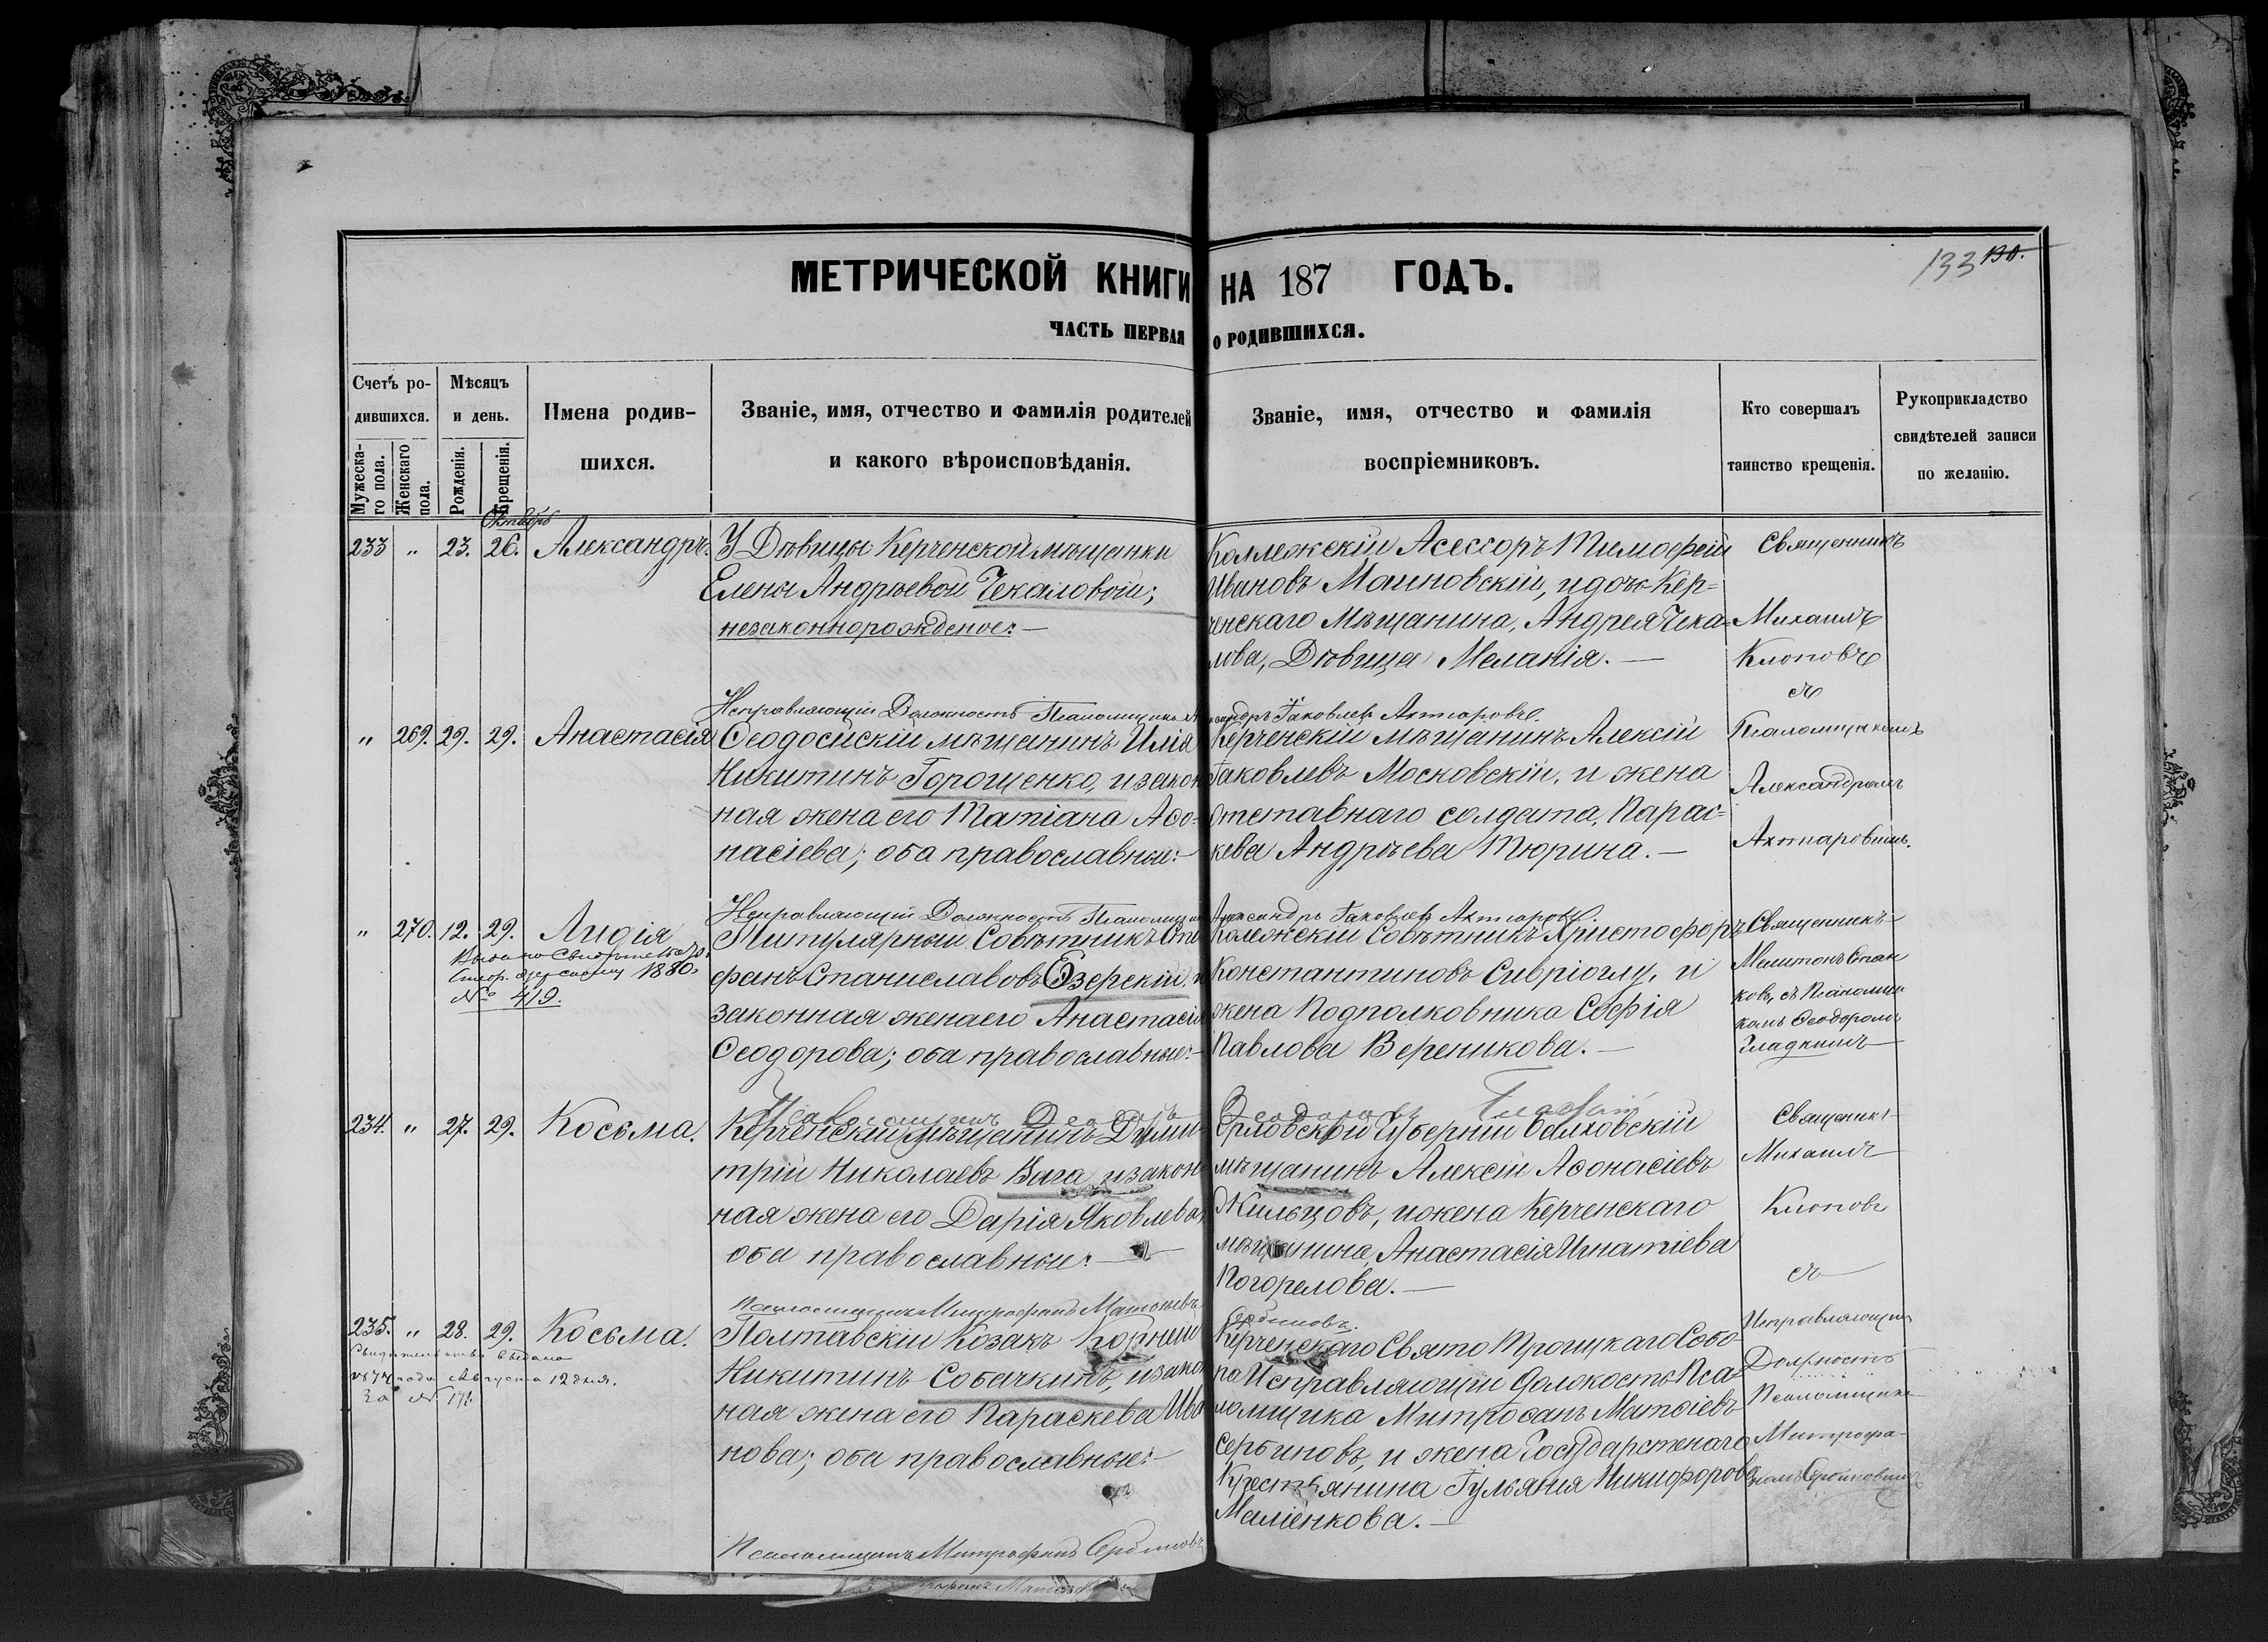 133 130.
МЕТРИЧЕСКОЙ КНИГИ НА 187 ГОДЪ.
ЧАСТЬ ПЕРВАЯ О РОДИВШИХСЯ.
Счетъ ро-
дившихся.
Мужеска-
го пола.
Женскаго
пола.
Мѣсяцъ
и день.
Рожденія.
Крещенія.
Имена родив-
шихся.
Званіе, имя, отчество и фамилія родителей
и какого вѣроисповѣданія.
Званіе, имя, отчество и фамилія
воспріемниковъ.
Кто совершалъ
таинство крещенія.
Рукоприкладство
свидѣтелей записи
по желанію.
Октябрь
233 " 23. 26. Александръ.
У Дѣвицы Керченской мѣщанки
Елены Андреевой Чекаловой;
незаконнорожденое: —
Коллежскій Асессоръ Тимофей
Ивановъ Малиновскій, и дочь Кер-
ченскаго Мѣщанина, Андрея Чека-
лова, Дѣвица Меланія. —
Священникъ
Михаилъ
Клоповъ
съ
Псаломщикомъ
Александромъ
Ахтаровымъ.
Исправляющій Должность Псаломщика Александръ Іаковлевъ Ахтаровъ.
" 269. 29. 29. Анастасія
Ѳеодосійскій мѣщанинъ Илія
Никитинъ Горощенко, и закон
ная жена его Татіана Аѳо-
насіева; оба православные: -
Керченскій мѣщанинъ Алексій
Іаковлевъ Московскій, и жена
отставнаго солдата, Парас-
кева Андреева Тюрина. —
Исправляющій Должность Псаломщика Александръ Іаковлевъ Ахтаровъ.
" 270. 12. 29. Лидія
Выдано Свидѣтельство
1880
№ 419.
Титулярный Совѣтникъ Сте
фанъ Станиславовъ Озерскій, и
законная жена его Анастасія
Ѳеодорова; оба православные: -
Колежскій Совѣтникъ Христофоръ
Константиновъ Сивріоглу, и
жена Подполковника Софія
Павлова Вереникова. —
Священникъ
Мелитонъ Станковъ, съ Псаломщи
комъ Ѳеодоромъ
Гладкимъ
Псаломщикъ Ѳеодоръ Гладкій
234. " 27. 29. Косьма.
Керченскій мѣщанинъ Дими
трій Николаевъ Вага, и закон
ная жена его Дарія Яковлева;
оба православные: —
Орловской Губерніи Болховскій
мѣщанинъ Алексій Аѳонасіевъ
Жильцовъ, и жена Керченскаго
мѣщанина, Анастасія Игнатіева
Погорелова. —
Священникъ
Михаилъ
Клоповъ
съ
Исправляющимъ
Должность
Псаломщика
Митрофа-
номъ Сербиновымъ
Псаломщикъ Митрофанъ Матѳіевъ Сербиновъ.
235. " 28. 29. Косьма.
Свидѣтельство выдано
1877 года Августа 12 дня.
За №
Полтавскій Козакъ Корнелій
Никитинъ Собачкинъ, и закон
ная жена его Параскева Ива
нова; оба православные: -
Керченскаго Свято Троицкаго Собо-
ра Исправляющій Должность Пса-
ломщика Митрофанъ Матѳіевъ
Сербиновъ, и жена Государственаго
Крестьянина Іуліанія Никифорова
Маліенкова. —
Псаломщикъ Митрофанъ Сербиновъ